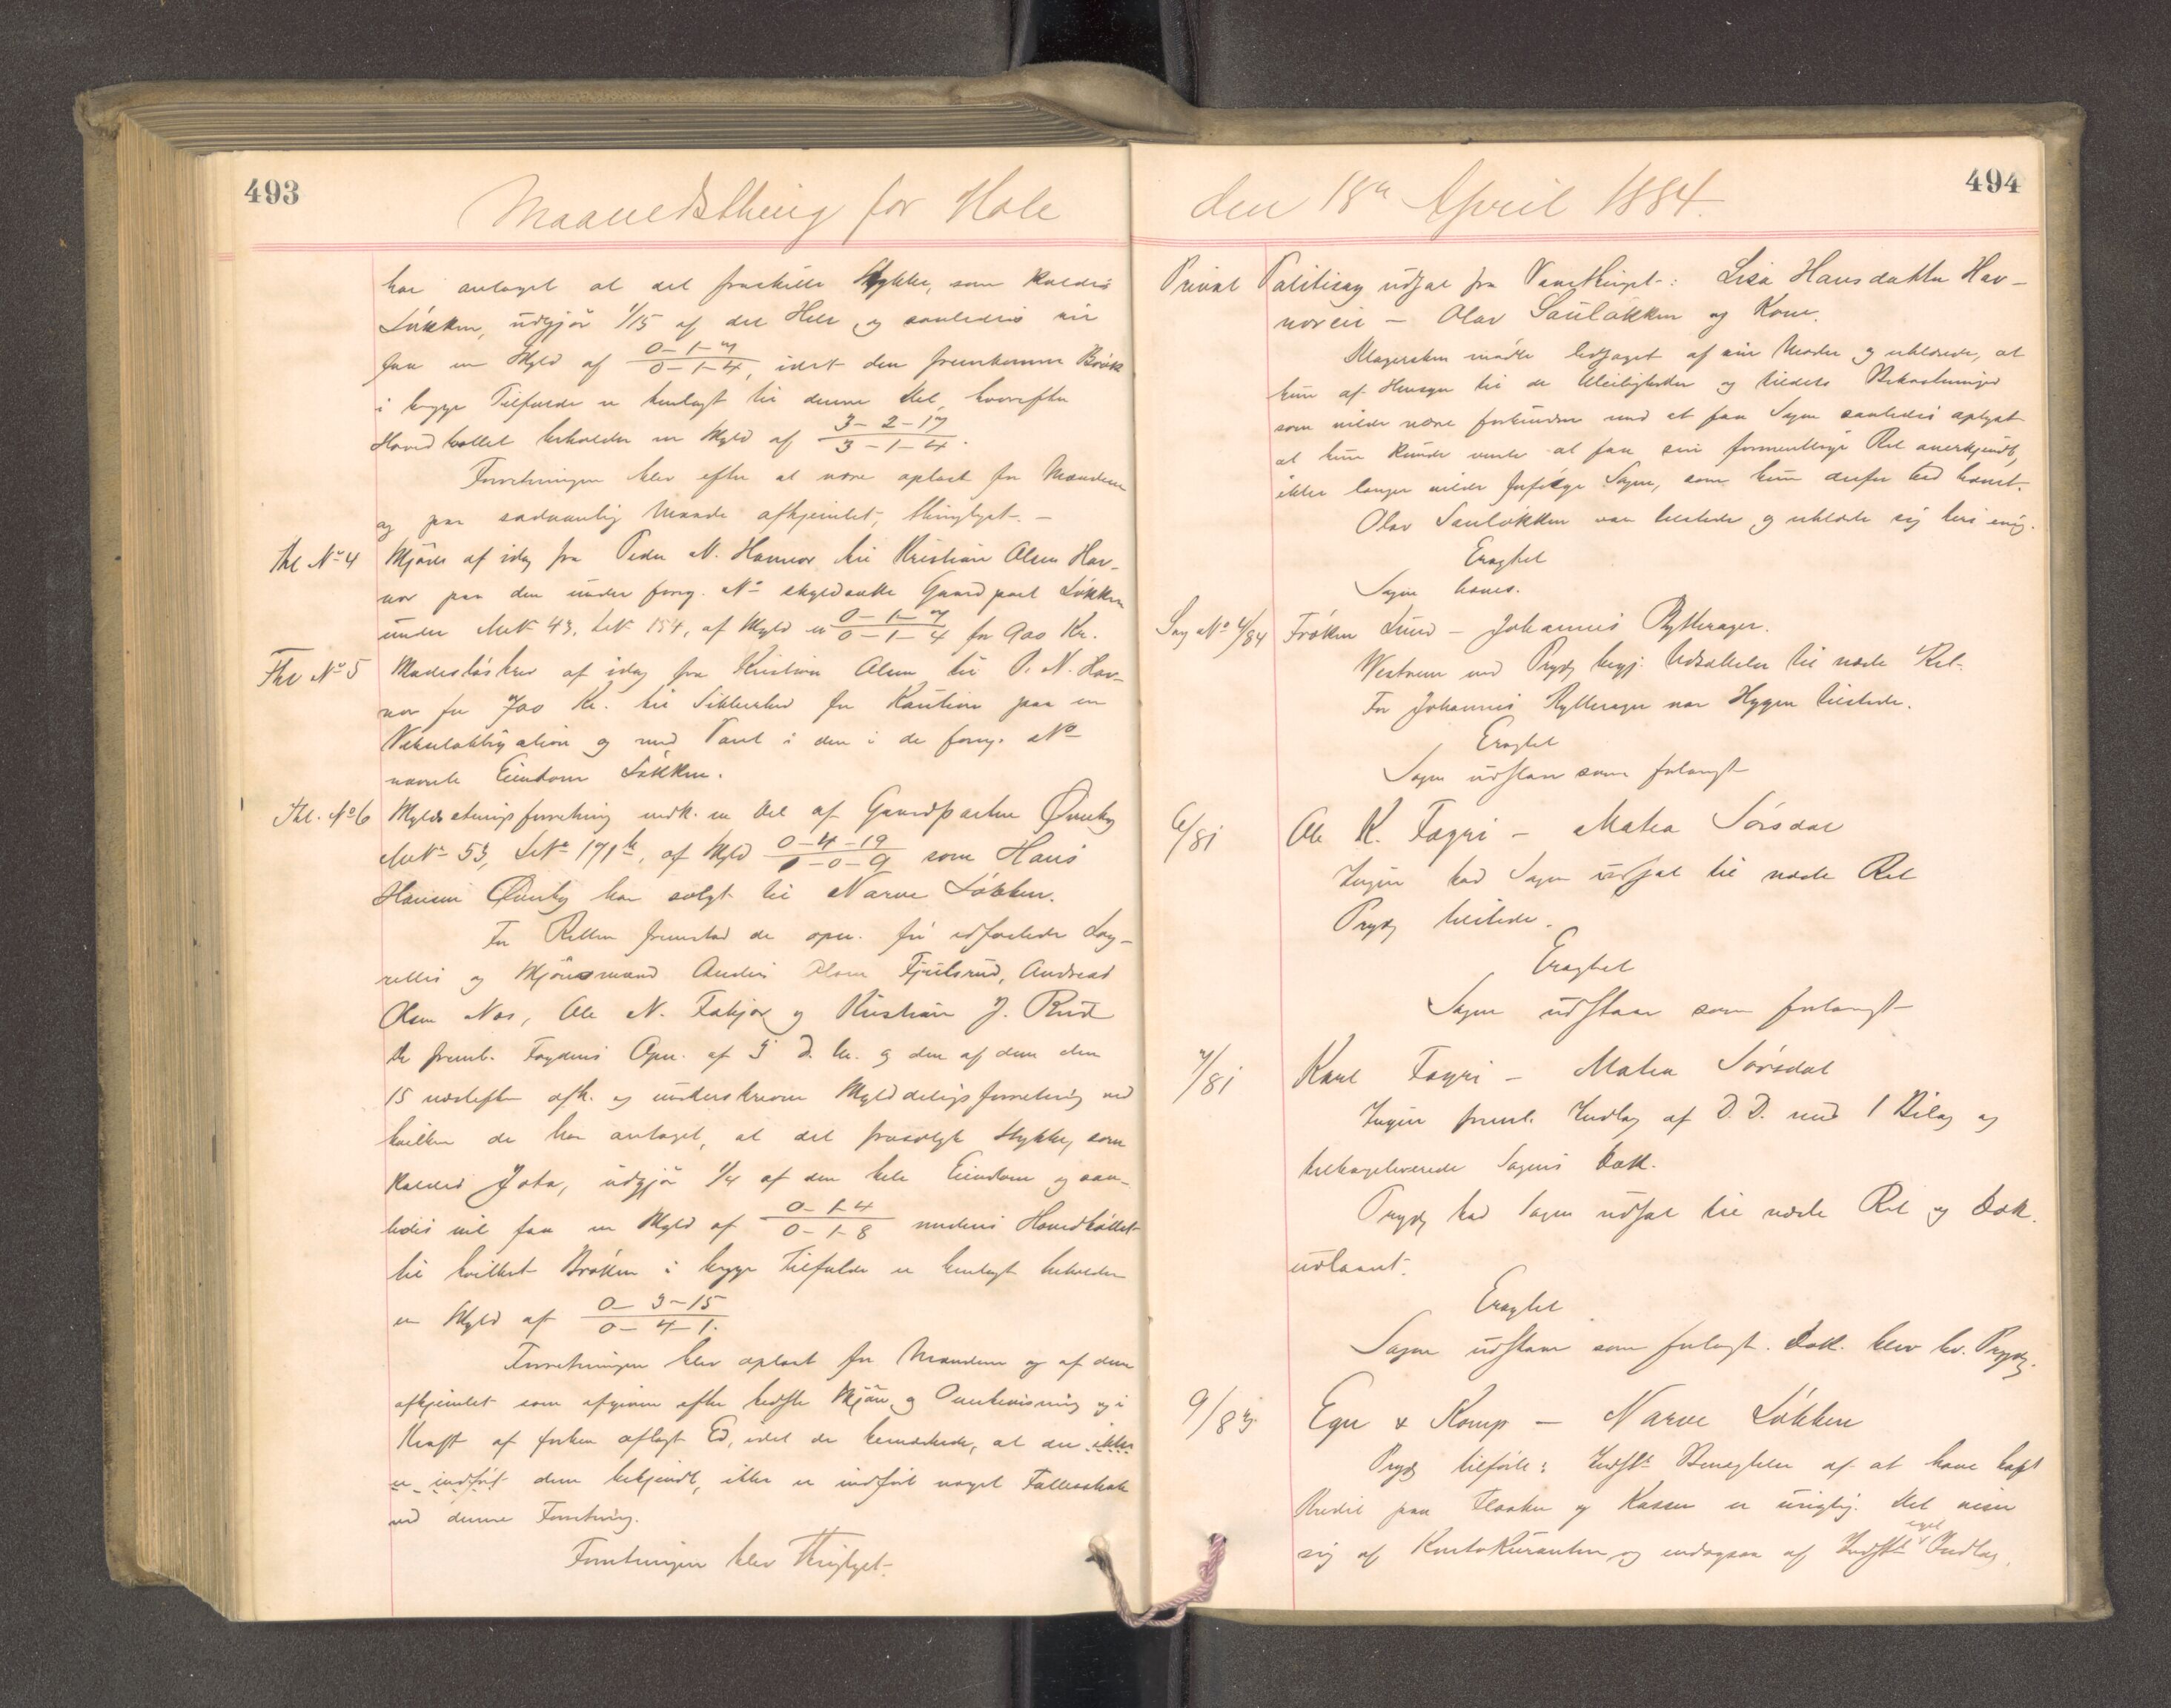 493
Maanedsthing for Hole
har antaget at det fraskilte Stykke, som kaldes
Løkken, udgjør 1/15 af det Hele og saaledes vil
faa en Skyld af 0-1-7 / 0-1-4, idet den fremkomne Brøk
i begge Tilfælde er henlagt til denne Del, hvorefter
Hovedbøllet beholder en Skyld af 3-2-17 / 3-1-4.
Forretningen blev efter at være oplæst for Mændene
og paa sædvanlig Maade afhjemlet, thinglyst. –
Thl No 4 Skjøde af idag fra Peder N. Havnor til Kristian Olsen Hav-
nor paa den under foreg. No skyldsatte Gaardpart Løkken
under MNo 43, LNo 154, af Skyld 0-1-7 / 0-1-4 for 900 Kr.
Thl No 5 Skadesløsbrev af idag fra Kristian Olsen til P. N. Hav-
nor for 700 Kr. til Sikkerhed for Kaution paa en
Vexelobligation og med Pant i den i de foreg. No
nævnte Eiendom Løkken.
Thl. No 6 Skyldsætningsforretning vedk. en Del af Gaardparten Øineby
MNo 53, LNo 171b, af Skyld 0-4-19 / 1-0-9 som Hans
Hansen Øineby har solgt til Narve Løkken.
For Retten fremstod de opn. før edfæstede Lag-
rettes og Skjønsmænd Anders Olsen Fjulsrud, Andreas
Olsen Næs, Ole N. Fækjør og Kristian J. Rud
De freml. Fogdens Opn. af 5 d. M. og den af dem den
15 næstefter afh. og underskrevne Skylddelingsforretning ved
hvilken de har antaget, at det frasolgte Stykke, som
kaldes Jota, udgjør 1/4 af den hele Eiendom og saa-
ledes vil faa en Skyld af 0-1-4 / 0-1-8 medens Hovedbøllet
til hvilket Brøken i begge Tilfælde er henlagt beholder
en Skyld af 0-3-15 / 0-4-1.
Forretningen blev oplæst for Mændene og af dem
afhjemlet som afgiven efter bedste Skjøn og Overbevisning og i
Kraft af forhen aflagt Ed, idet de bemærkede, at der ikke
er indført dem bekjendt, ikke er indført noget Fællesskab
ved denne Forretning.
Forretningen blev Thinglyst.
494
den 18de April 1884.
Privat Politisag udsat fra Vaarthinget: Lisa Hansdatter Hav-
noreie – Olav Sauløkken og Kone.
Klagersken mødte ledsaget af sin Moder og erklærede, at
hun af Hensyn til de Vidtløftigheder og tildels Bekostninger
som vilde være forbunden med at faa Sagen saaledes oplyst
at hun kunde vente at faa sin formentlige Ret anerkjendt,
ikke længer vilde forfølge Sagen, som hun derfor bad hævet.
Olav Sauløkken var tilstede og erklærte sig heri enig.
Eragtet
Sagen hæves.
Sag No 4/84 Frøken Lund – Johannes Rytterager.
Westrum ved Prydz begj. Udsættelse til næste Ret.
For Johannes Rytterager var Hygen tilstede.
Eragtet
Sagen udstaar som forlangt
6/81 Ole K. Fægri – Mathea Sørsdal
Ingier bad Sagen udsat til næste Ret
Prydz tilstede.
Eragtet
Sagen udstaar som forlangt
7/81 Karl Fægri – Mathea Sørsdal
Ingier freml. Indlæg af D. D. med 1 Bilag og
tilbageleverede Sagens Dok.
Prydz bad Sagen udsat til næste Ret og Dok.
udlaant.
Eragtet
Sagen udstaar som forlangt. Dok. blev lev. Prydz.
9/83. Eger & Komp – Narve Løkken
Prydz tilførte: Indst. Benægtelse af at have havt
Kredit paa Flasker og Kasser er urigtig. Det viser
sig af Kontokuranten og endogsaa af Indst. eget Indlæg.